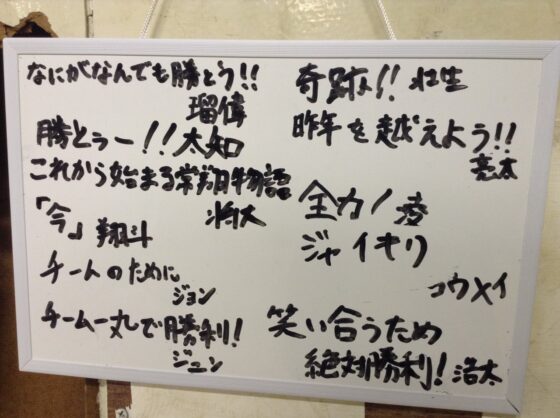 なにがなんでも勝とう!!
瑠偉
勝とぅー!!大知
これから始まる常翔物語
将大
「今」翔斗
チートのために
ジョン
チーム一丸で勝利!
ジュン
奇跡!! 壮生
昨年を越えよう!!
亮太
全力!凌
ジャイキリ
コウメイ
笑い合うため
絶対勝利!浩太